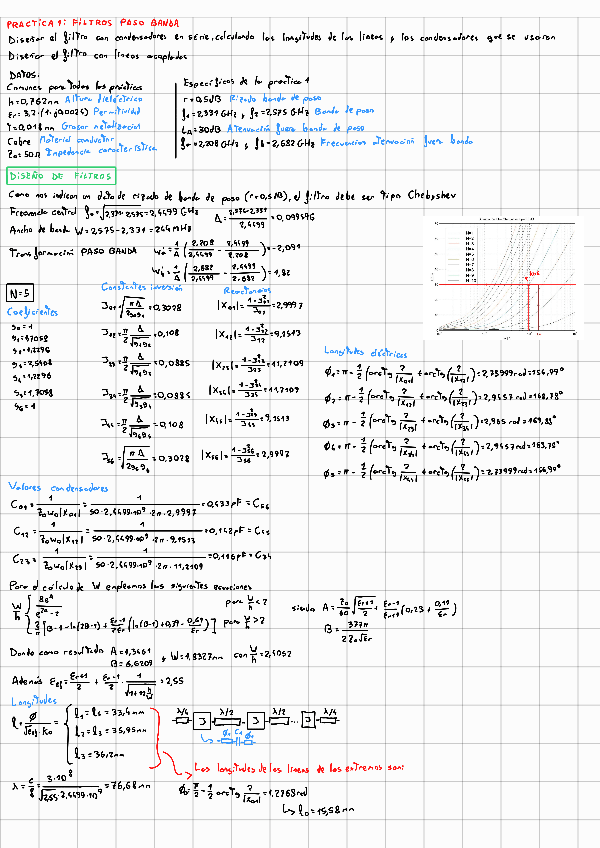 PRACTICA 1: FILTROS PASO BANDA
Diseñar el filtro con condensadores en serie, calculando las longitudes de las lineas y los condensadores que se usaran
Diseñar el filtro con lineas acopladas
DATOS:
Comunes para todas las prácticas
h=0,762mm Altura dieléctrico
Permitividad
T=0,018mm Grosor metalización
Cobre Material conductor
Z0=50Ω Impedancia característica
Específicos de la práctica 1
r=0,5dB Rizado banda de paso
f1=2,331 GHz y f2=2,575 GHz Banda de paso
LA=30dB Atenuación fuera banda de paso
fa=2,208 GHz y fb=2,682 GHz Frecuencias atenuación fuera banda
DISEÑO DE FILTROS
Como nos indican un dato de rizado de banda de paso (r=0,5dB), el filtro debe ser tipo Chebyshev
Frecuencia central f0=√2,331·2,575=2,4499 GHz Δ=(2,575-2,331)/2,4499=0,099596
Ancho de banda W=2,575-2,331=244MHz
Transformación PASO BANDA Wa'=1/Δ(2,208/2,4499-2,4499/2,208)=-2,091
Wb'=1/Δ(2,682/2,4499-2,4499/2,682)=1,82
N=5
Coeficientes
g0=1
g1=1,7058
g2=1,2296
g3=2,5408
g4=1,2296
g5=1,7058
g6=1
Constantes inversión
J01=√(πΔ/2g0g1)=0,3028
J12=π/2 Δ/√g1g2=0,108
J23=π/2 Δ/√g2g3=0,0885
J34=π/2 Δ/√g3g4=0,0885
J45=π/2 Δ/√g4g5=0,108
J56=√(πΔ/2g5g6)=0,3028
Reactancias
|X01|=(1-J01²)/J01=2,9997
|X12|=(1-J12²)/J12=9,1513
|X23|=(1-J23²)/J23=11,2109
|X34|=(1-J34²)/J34=11,2109
|X45|=(1-J45²)/J45=9,1513
|X56|=(1-J56²)/J56=2,9997
Longitudes eléctricas
Valores condensadores
C01=1/(Z0w0|X01|)=1/(50·2,4499·10⁹·2π·2,9997)=0,433pF=C56
C12=1/(Z0w0|X12|)=1/(50·2,4499·10⁹·2π·9,1513)=0,142pF=C45
C23=1/(Z0w0|X23|)=1/(50·2,4499·10⁹·2π·11,2109)=0,116pF=C34
Para el cálculo de W empleamos las siguientes ecuaciones
W/h {8e^A/(e^2A-2) para W/h<2
2/π[B-1-ln(2B-1)+(εr-1)/2εr(ln(B-1)+0,39-0,61/εr)] para W/h>2
siendo A=Z0/60 √((εr+1)/2)+(εr-1)/(εr+1)(0,23+0,11/εr)
B=377π/(2Z0√εr)
Dando como resultado A=1,3461
B=6,6209 y W=1,8327mm con W/h=2,4052
Además εef=(εr+1)/2+(εr-1)/2·1/√(1+12h/W)=2,55
Longitudes
l=Φ/(√εef·k0)={l1=l5=33,4mm
l2=l4=35,95mm
l3=36,2mm
λ/4 J λ/2 J λ/2 ... J λ/4
λ=c/f=3·10⁸/(√2,55·2,4499·10⁹)=76,68mm
Las longitudes de las lineas de los extremos son:
Φ0=π/2-1/2 arctg 2/|X01|=1,2768rad
↳ l0=15,58mm